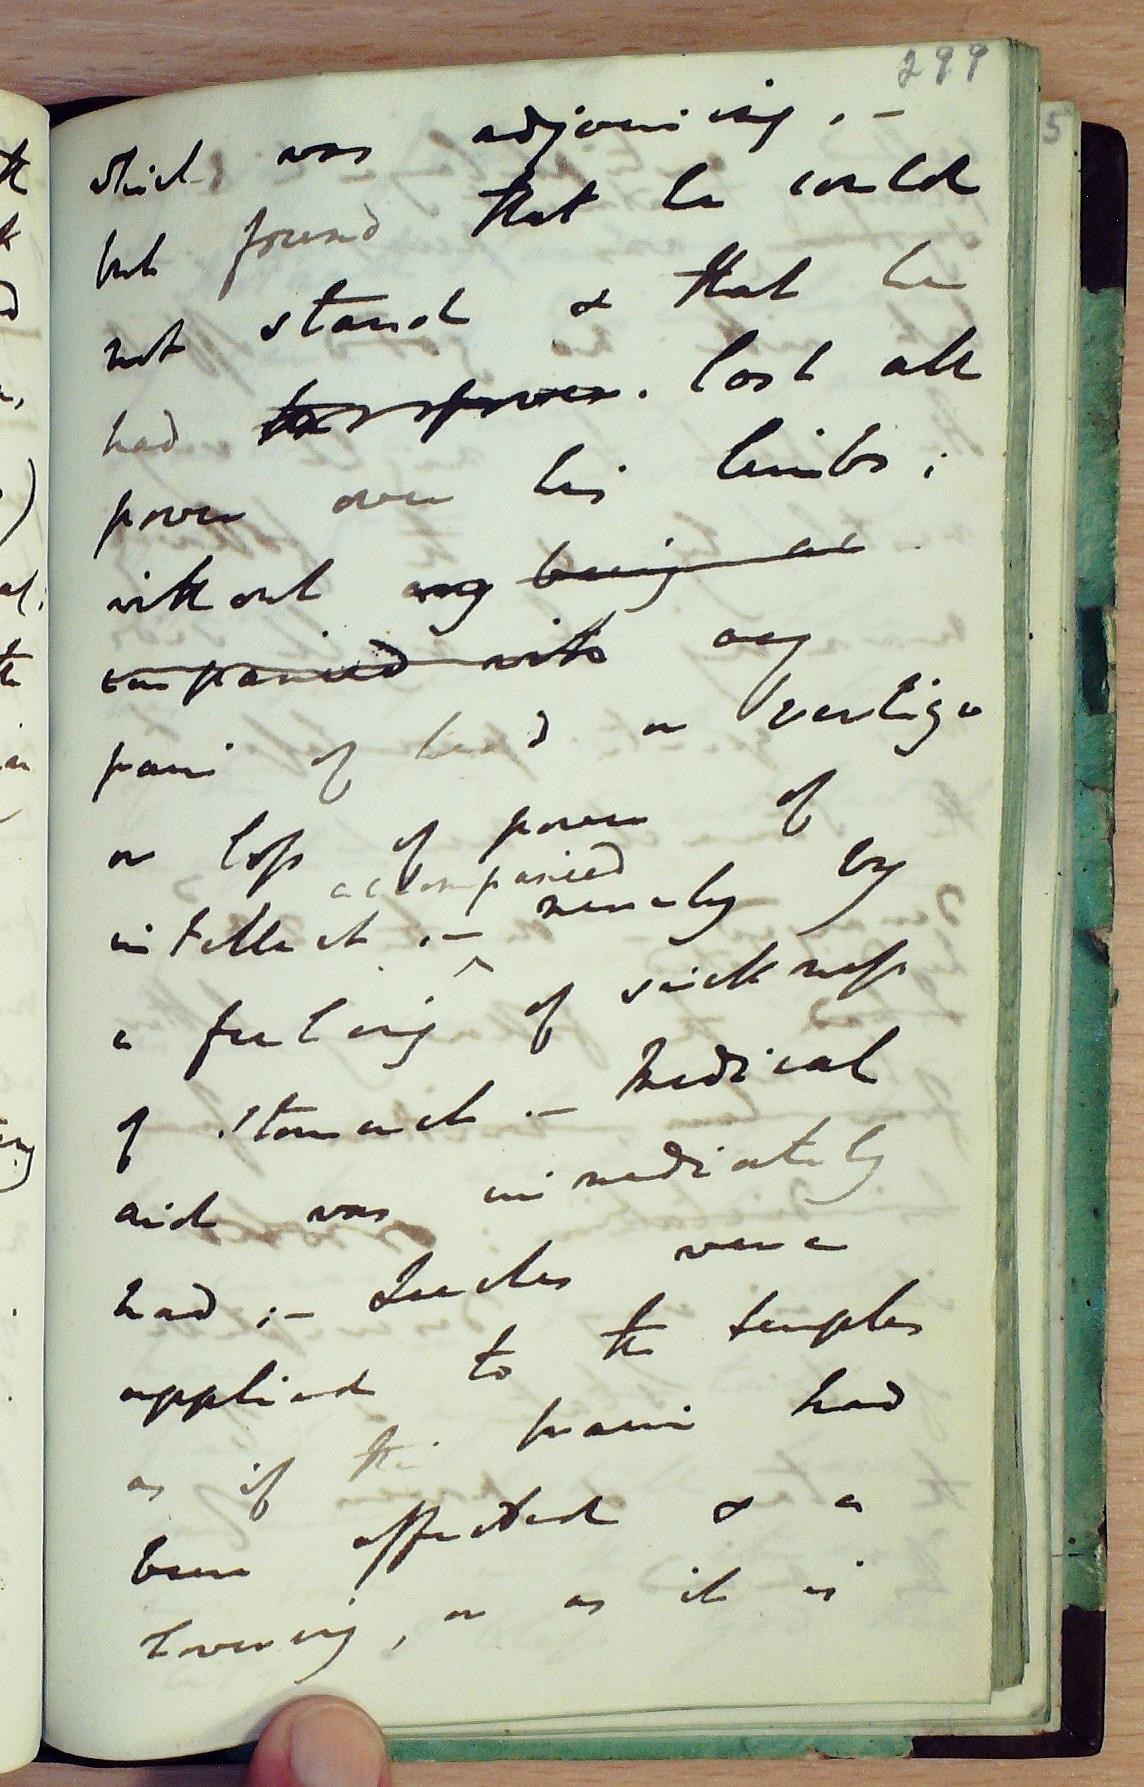 299
which was adjoining. –
but found that he could
not stand & that he
had lost all
power over his limbs;
without any being ac
companied with any
pain of head or vertigo
or loss of power of
accompanied
intellect. – merely by
a feeling of sickness
of stomach. – Medical
aid was immediately
had; – Leeches were
applied to the temples
as if the brain had
been affected & a
lowering, or as it is